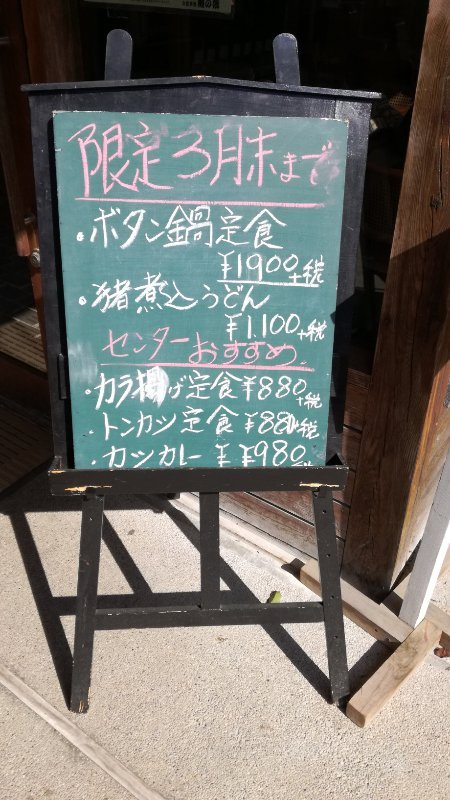 限定3月末まで
・ボタン鍋定食
¥1900+税
・猪煮込うどん
¥1,100+税
センターおすすめ
・カラ揚げ定食¥880+税
・トンカツ定食¥880+税
・カツカレー¥¥980